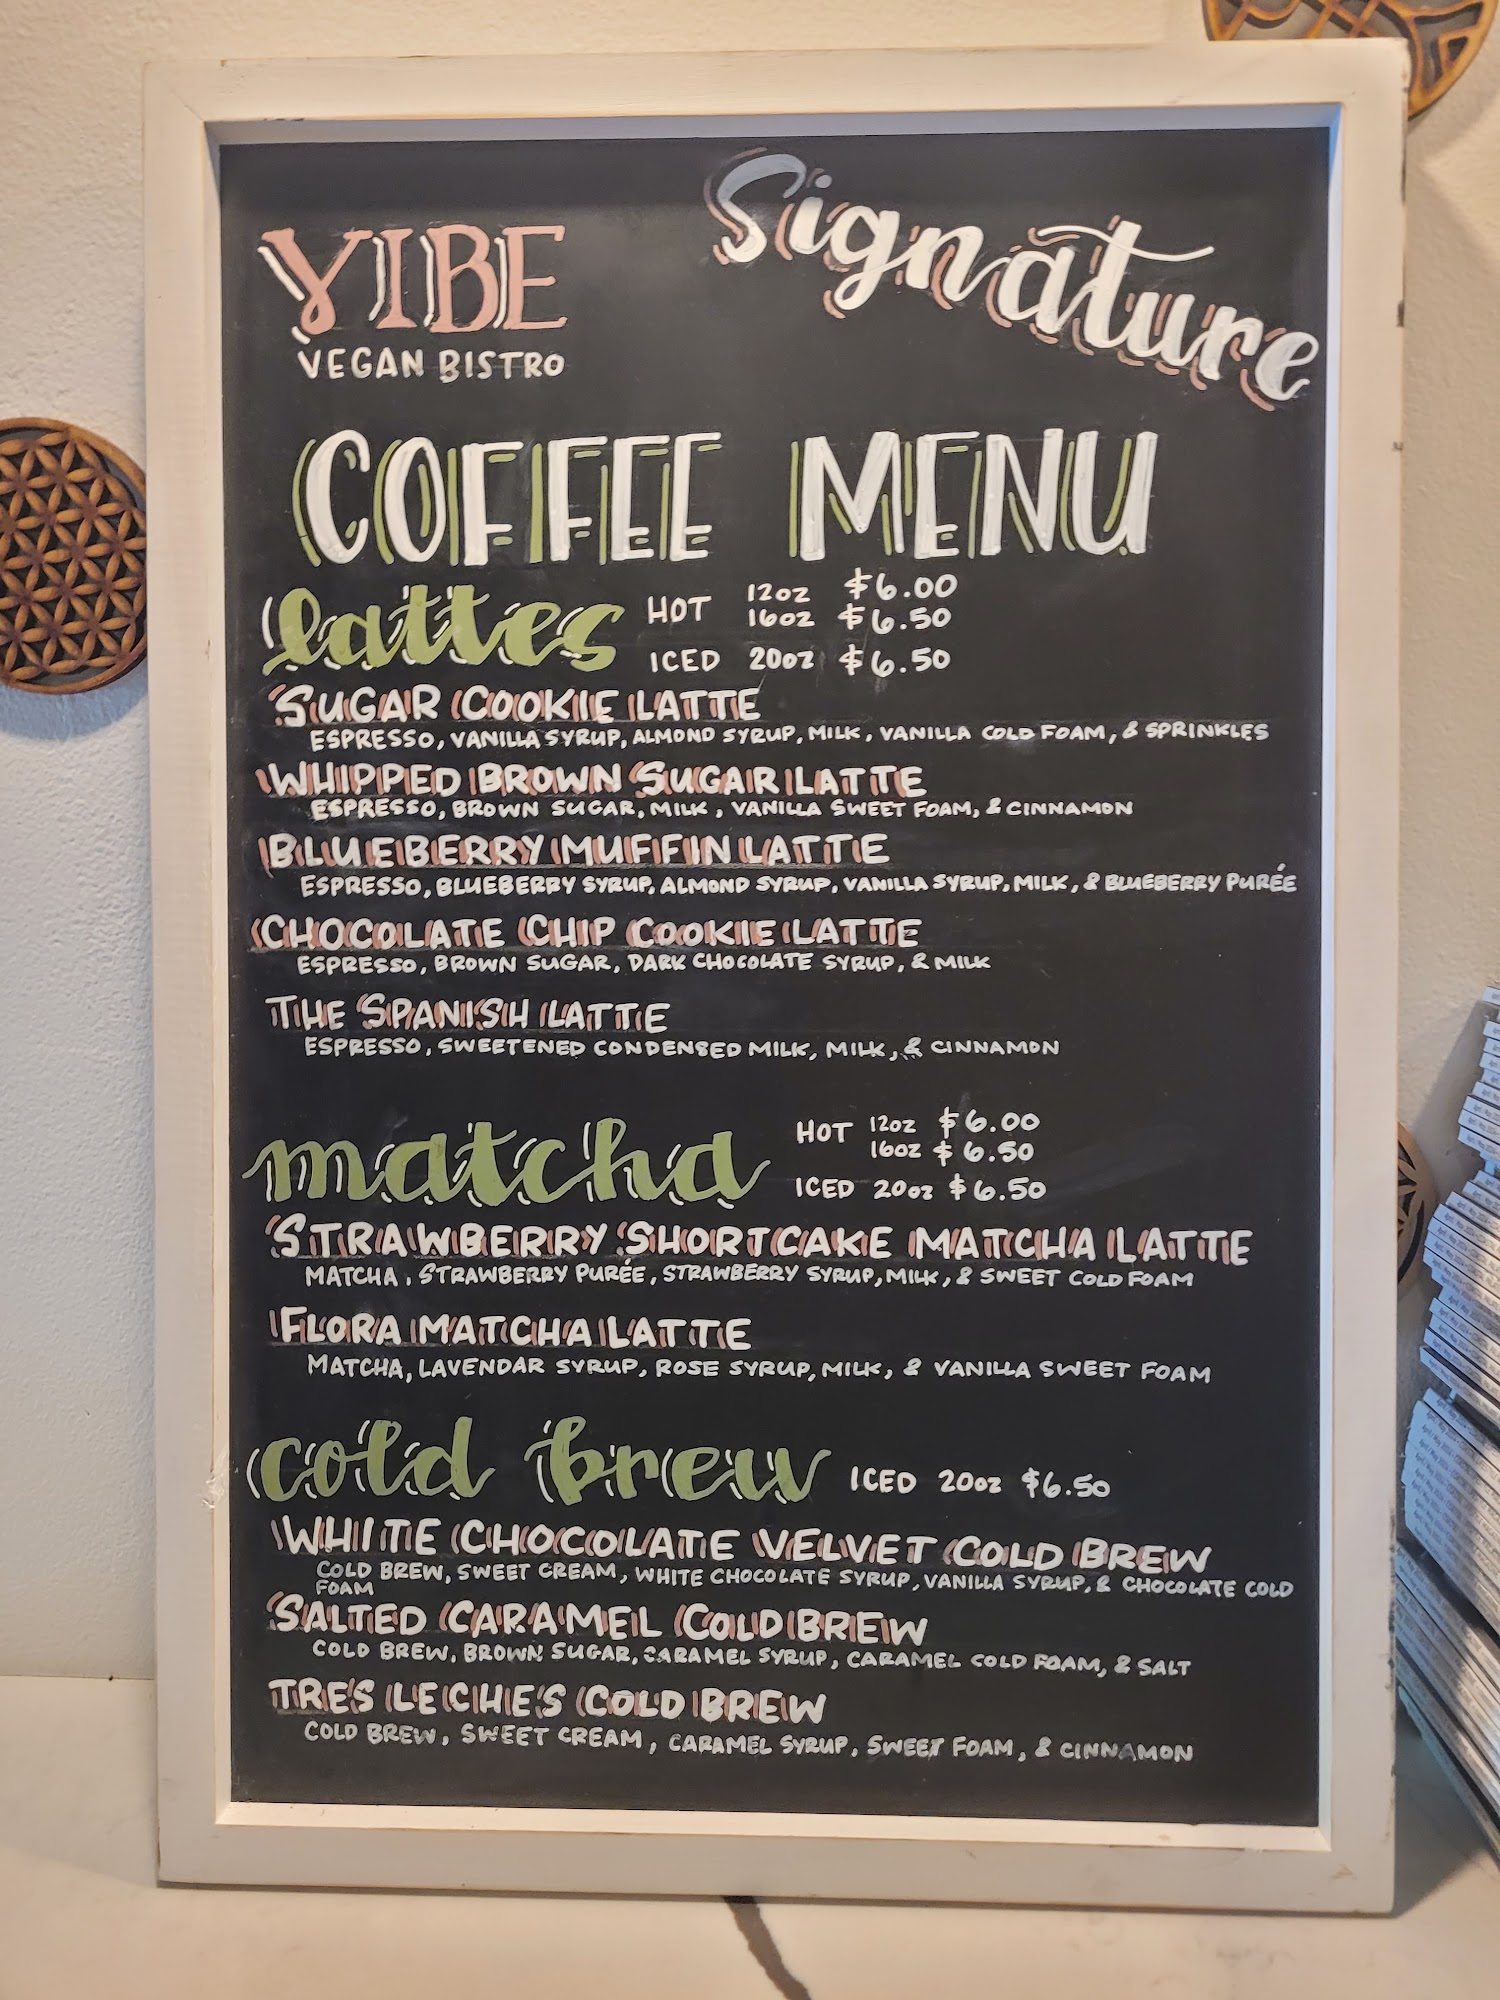 VIBE
VEGAN BISTRO
Signature
COFFEE MENU
lattes HOT 12oz $6.00
16oz $6.50
ICED 20oz $6.50
SUGAR COOKIE LATTE
ESPRESSO, VANILLA SYRUP, ALMOND SYRUP, MILK, VANILLA COLD FOAM, & SPRINKLES
WHIPPED BROWN SUGAR LATTE
ESPRESSO, BROWN SUGAR, MILK, VANILLA SWEET FOAM, & CINNAMON
BLUEBERRY MUFFIN LATTE
ESPRESSO, BLUEBERRY SYRUP, ALMOND SYRUP, VANILLA SYRUP, MILK, & BLUEBERRY PURÉE
CHOCOLATE CHIP COOKIE LATTE
ESPRESSO, BROWN SUGAR, DARK CHOCOLATE SYRUP, & MILK
THE SPANISH LATTE
ESPRESSO, SWEETENED CONDENSED MILK, MILK, & CINNAMON
matcha HOT 12oz $6.00
16oz $6.50
ICED 20oz $6.50
STRAWBERRY SHORTCAKE MATCHA LATTE
MATCHA, STRAWBERRY PURÉE, STRAWBERRY SYRUP, MILK, & SWEET COLD FOAM
FLORA MATCHA LATTE
MATCHA, LAVENDAR SYRUP, ROSE SYRUP, MILK, & VANILLA SWEET FOAM
cold brew ICED 20oz $6.50
WHITE CHOCOLATE VELVET COLD BREW
COLD BREW, SWEET CREAM, WHITE CHOCOLATE SYRUP, VANILLA SYRUP, & CHOCOLATE COLD
FOAM
SALTED CARAMEL COLD BREW
COLD BREW, BROWN SUGAR, CARAMEL SYRUP, CARAMEL COLD FOAM, & SALT
TRES LECHE'S COLD BREW
COLD BREW, SWEET CREAM, CARAMEL SYRUP, SWEET FOAM, & CINNAMON